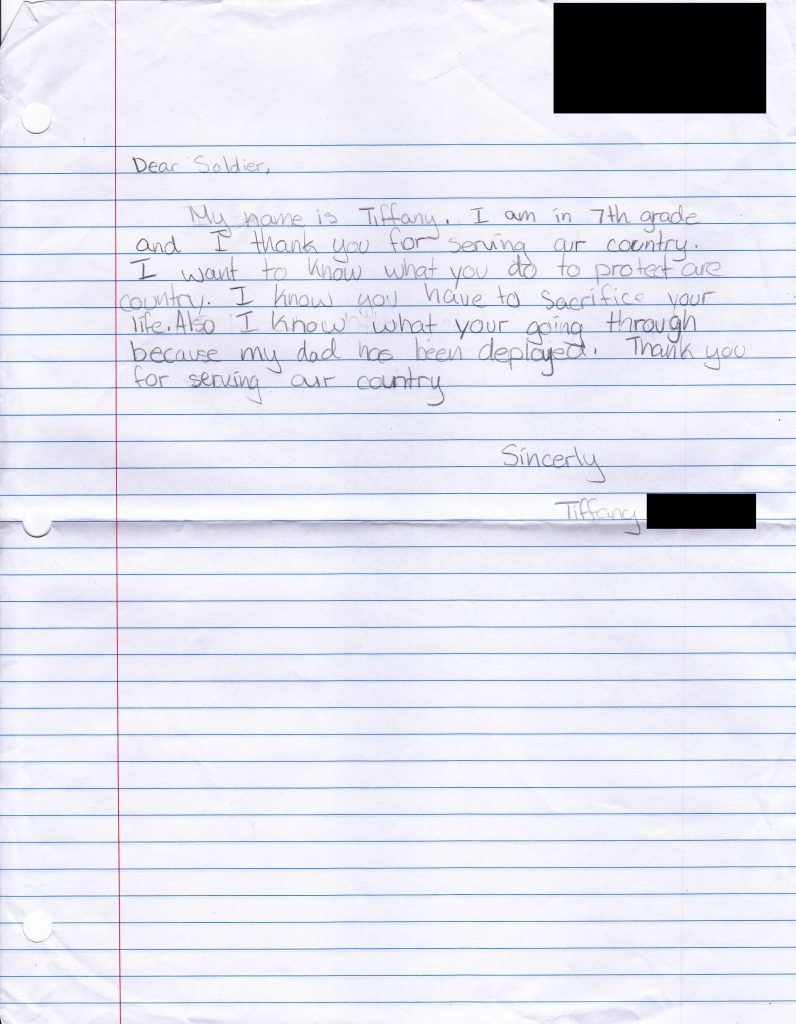 Dear Soldier,
My name is Tiffany. I am in 7th grade
and I thank you for serving our country.
I want to know what you do to protect are
country. I know you have to sacrifice your
life. Also I know what your going through
because my dad has been deployed. Thank you
for serving our country
Sincerly
Tiffany